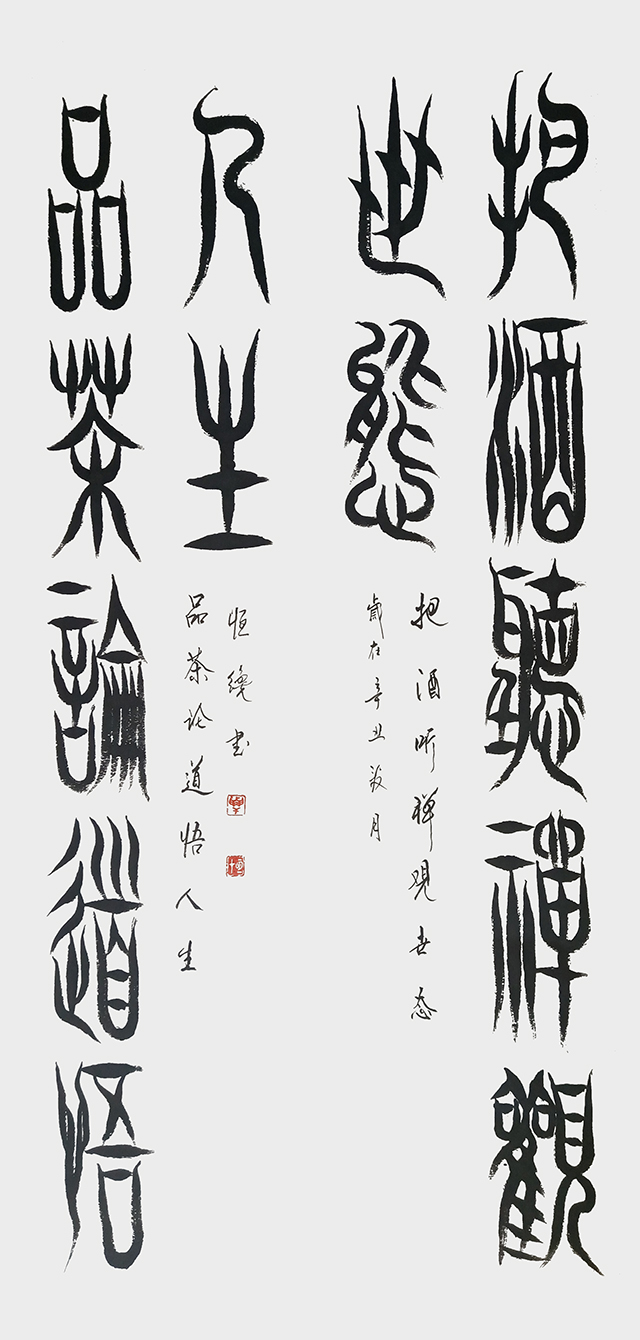 把酒聽禪觀
世態
把酒听禅观世态
歲在辛丑月
品茶論道悟
人生
品茶论道悟人生
恒书